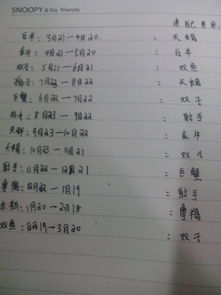 SNOOPY & his friends
速配星座
白羊: 3月21 — 4月20 : 天蝎
金牛: 4月21 — 5月20 : 白羊
双子: 5月21 — 6月21 : 双鱼
狮子: 7月22 — 8月22 : 天蝎
巨蟹: 6月22 — 7月22 : 双子
8月23 — 9月22 : 射手
天秤: 9月23 — 10月22 : 金牛
天蝎: 10月23 — 11月21 : 双子
射手: 11月22 — 12月21 : 巨蟹
摩羯: 12月22 — 1月19 : 射手
水瓶: 1月20 — 2月18 : 摩羯
双鱼: 2月19 — 3月20 : 双子